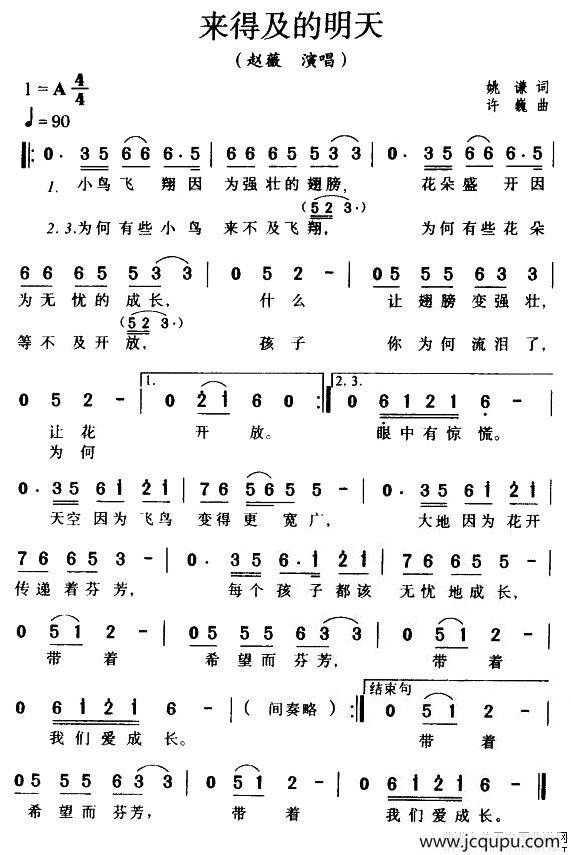 来得及的明天
（赵薇 演唱）
1=A 4/4
姚谦词
♩=90
许巍曲
‖: 0· 35 66 6·5 | 66 65 53 3 | 0· 35 66 6·5 |
1. 小鸟飞 翔因 为强壮的翅膀， 花朵盛 开因
(52 3·)
2.3.为何有些小鸟 来不及飞翔， 为何有些花朵
66 65 53 3 | 0 52 - | 05 55 63 3 |
为无忧的成长， 什么 让翅膀变强壮，
(52 3·)
等不及开放， 孩子 你为何流泪了，
1. 2.3.
0 5 2 - | 0 2̇1̇ 6 0 :‖ 0 6121 6 - |
让花 开放。 眼中有惊慌。
为何
0· 35 61̇ 2̇1̇ | 76 56 5 5 - | 0· 35 61̇ 2̇1̇ |
天空因为飞鸟 变得更宽广， 大地因为花开
76 65 3 - | 0· 35 6·1̇ 2̇1̇ | 76 65 5 - |
传递着芬芳， 每个孩子都该 无忧地成长，
0 51 2 - | 05 55 63 3 | 0 51 2 - |
带着 希望而芬芳， 带着
结束句
0 61̇2̇1̇ 6 - | （间奏略） :‖ 0 51 2 - |
我们爱成长。 带着
05 55 33 3 | 0 51 2 - | 0 61̇2̇1̇ 6 - ‖
希望而芬芳， 带着 我们爱成长。
www.jcqupu.com